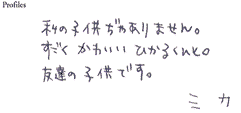 Profiles
私の子供ぢゃありません。
すごく かわいい ひかるくんと。
友達の子供です。
ミカ